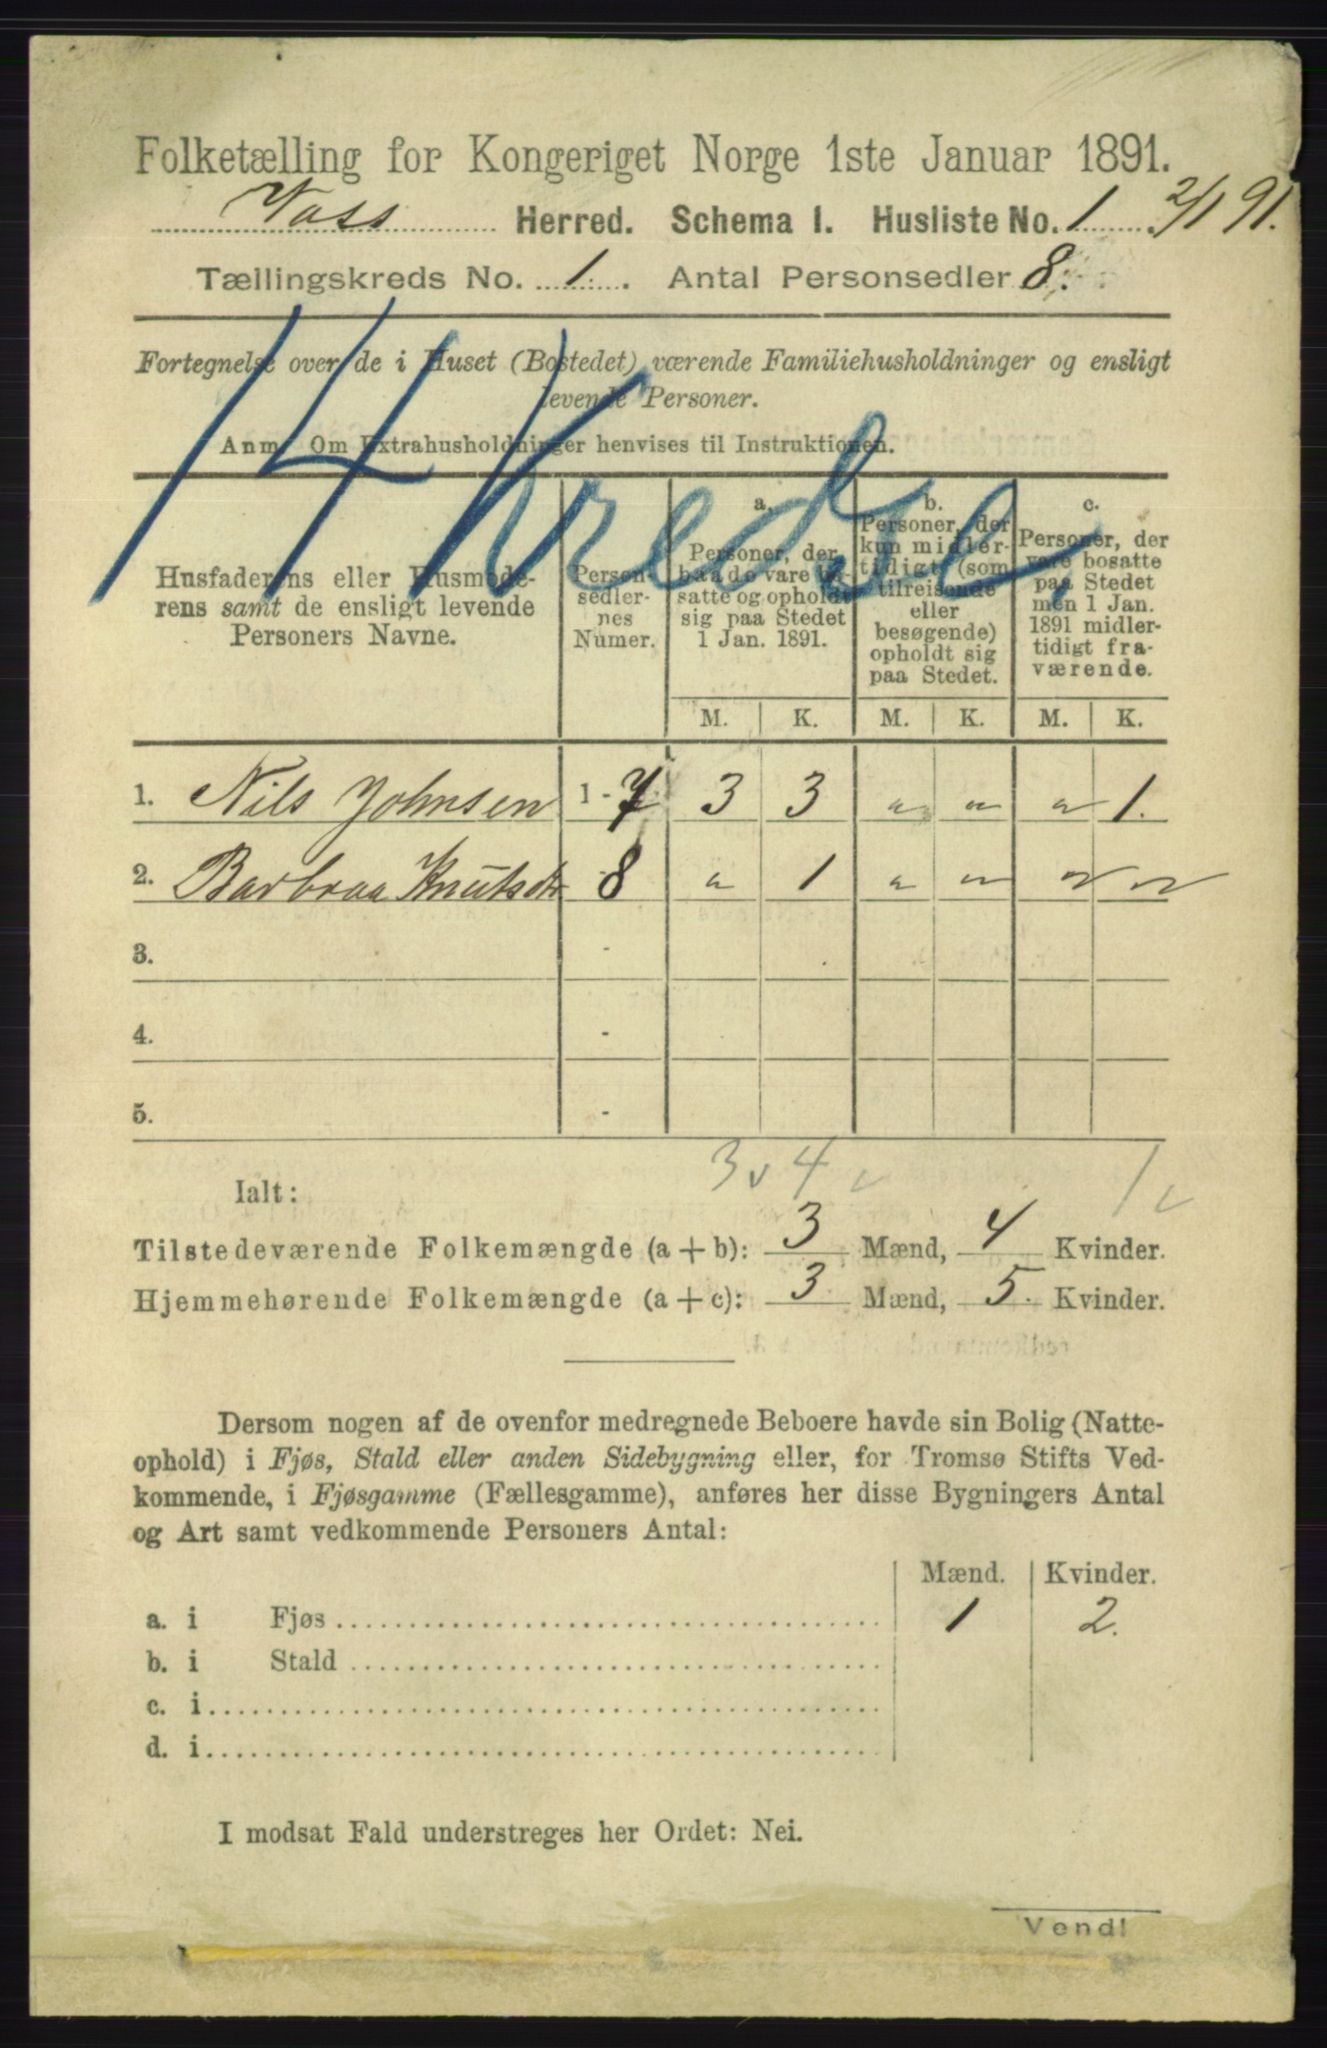 Folketælling for Kongeriget Norge 1ste Januar 1891.
Voss Herred. Schema I. Husliste No. 1. 2/1 91.
Tællingskreds No. 1. Antal Personsedler 8.
14 Kredse.
Fortegnelse over de i Huset (Bostedet) værende Familiehusholdninger og ensligt
levende Personer.
Anm. Om Extrahusholdninger henvises til Instruktionen.
Husfaderens eller Husmode-
rens samt de ensligt levende
Personers Navne.
Person-
sedler-
nes
Numer.
a.
Personer, der
baade vare bo-
satte og opholdt
sig paa Stedet
1 Jan. 1891.
b.
Personer, der
kun midler-
tidigt (som
tilreisende
eller
besøgende)
opholdt sig
paa Stedet.
c.
Personer, der
vare bosatte
paa Stedet
men 1 Jan.
1891 midler-
tidigt fra-
værende.
M. K. M. K. M. K.
1. Nils Johnsen 1 - 7 3 3 " " " 1.
2. Barbraa Knutsdtr - 8 " 1 " " " "
3. -
4. -
5. -
3 v 4 v 1 v
Ialt:
Tilstedeværende Folkemængde (a + b): 3 Mænd, 4 Kvinder.
Hjemmehørende Folkemængde (a + c): 3 Mænd, 5. Kvinder.
Dersom nogen af de ovenfor medregnede Beboere havde sin Bolig (Natte-
ophold) i Fjøs, Stald eller anden Sidebygning eller, for Tromsø Stifts Ved-
kommende, i Fjøsgamme (Fællesgamme), anføres her disse Bygningers Antal
og Art samt vedkommende Personers Antal:
Mænd. Kvinder.
a. i Fjøs 1 2.
b. i Stald
c. i
d. i
I modsat Fald understreges her Ordet: Nei.
Vend!